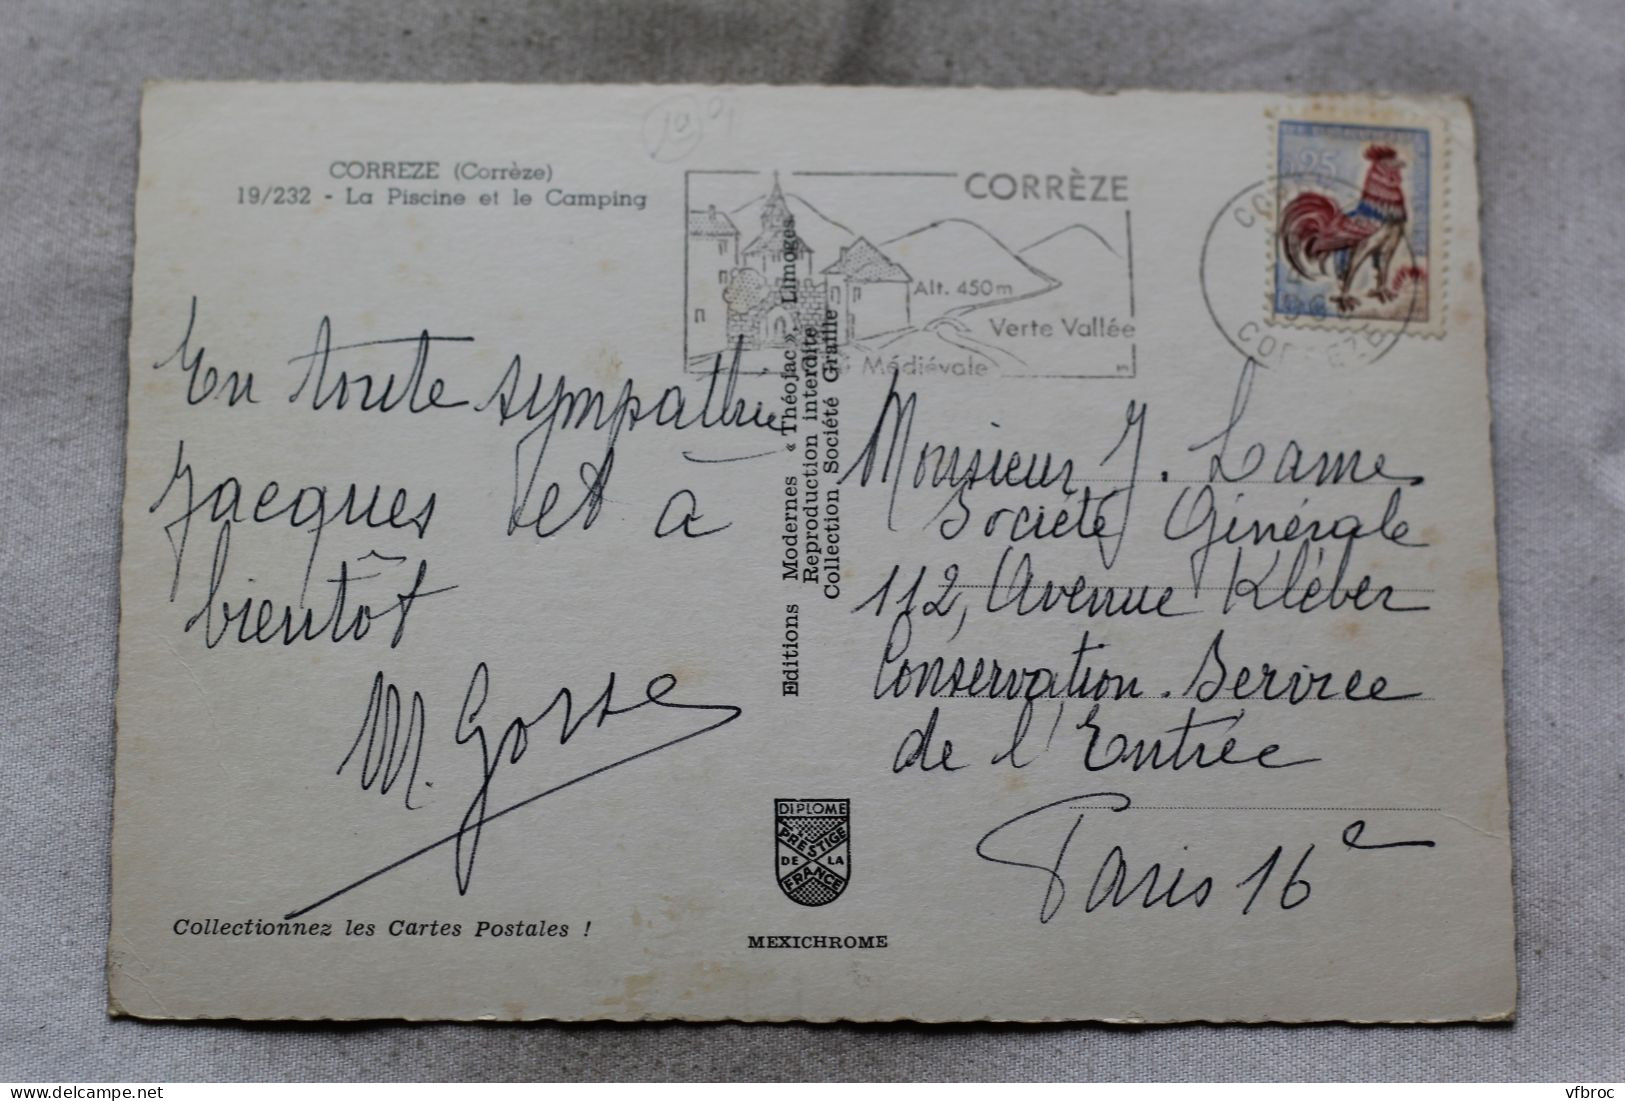 CORREZE (Corrèze)
19/232 - La Piscine et le Camping
CORRÈZE
Alt. 450m
Verte Vallée
Médiévale
0,25
CORREZE
En toute sympathie
Jacques et à
bientôt
M. Gorse
Collectionnez les Cartes Postales !
Editions Modernes « Théojac », Limoges
Reproduction interdite
Collection Société Graille
DIPLOME
PRESTIGE
DE LA
FRANCE
MEXICHROME
Monsieur J. Lame
Société Générale
112, Avenue Kléber
Conservation. Service
de l'Entrée
Paris 16e
vfbroc